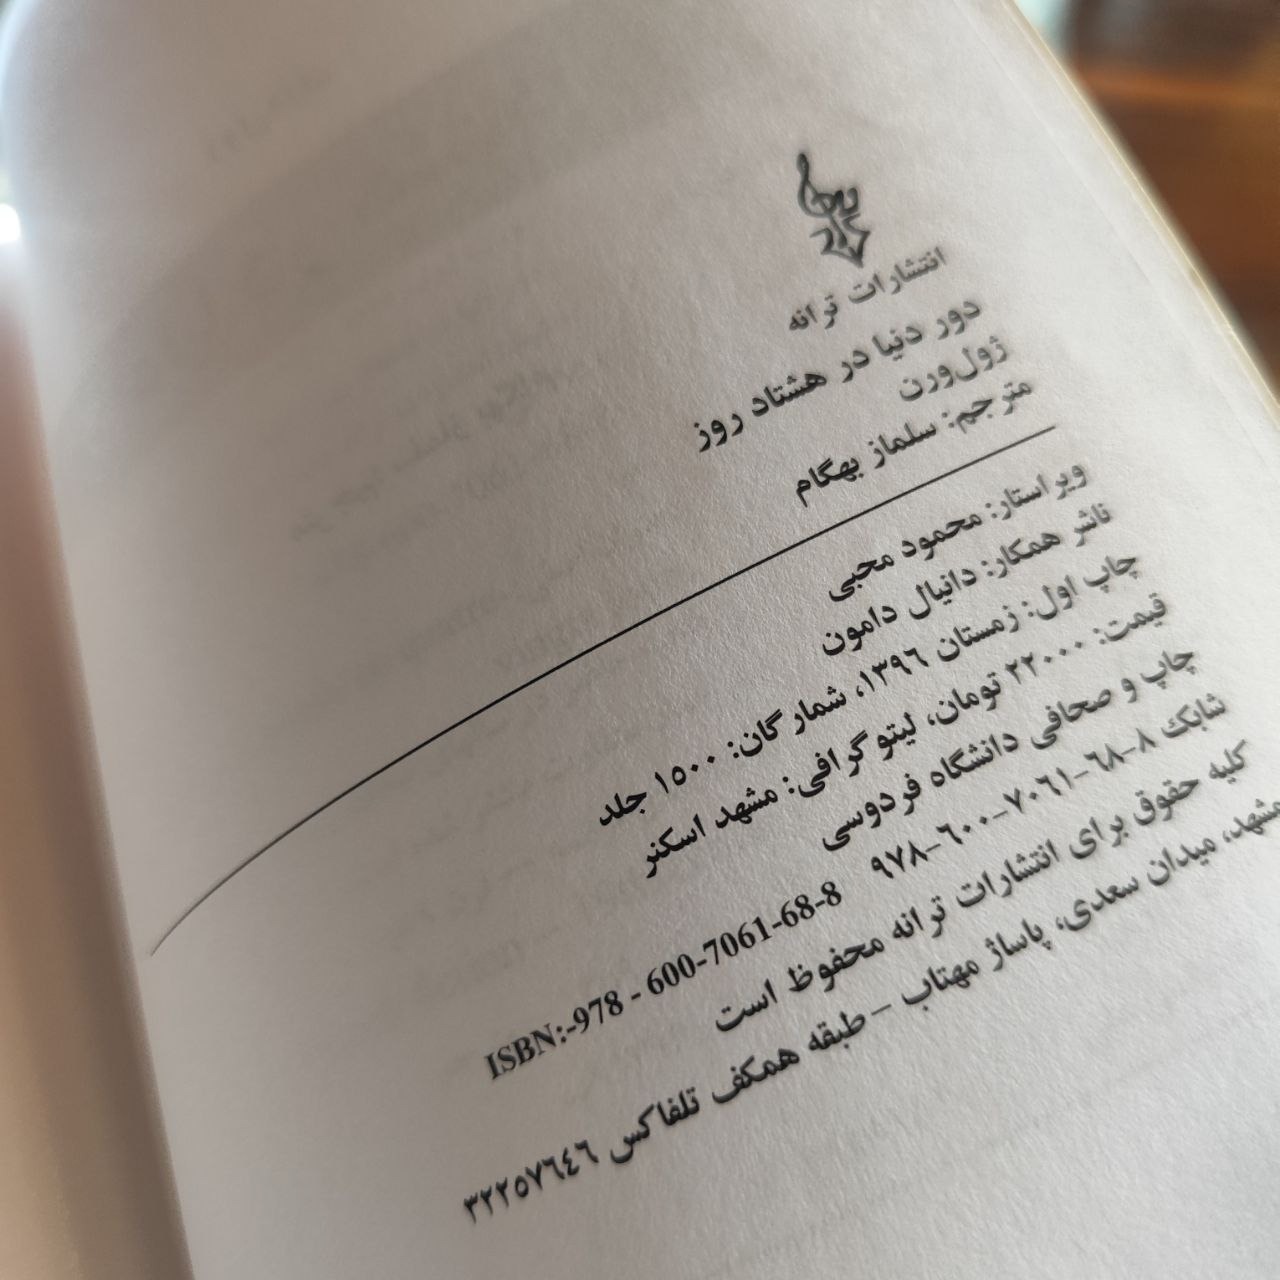 انتشارات ترانه
دور دنیا در هشتاد روز
ژول‌ورن
مترجم: سلماز بهگام
ویراستار: محمود محبی
ناشر همکار: دانیال دامون
چاپ اول: زمستان ۱۳۹۶، شمارگان: ۱۵۰۰ جلد
قیمت: ۲۲۰۰۰ تومان، لیتوگرافی: مشهد اسکنر
چاپ و صحافی دانشگاه فردوسی
شابک ۸-۶۸-۷۰۶۱-۶۰۰-۹۷۸ ISBN:-978 - 600-7061-68-8
کلیه حقوق برای انتشارات ترانه محفوظ است
مشهد، میدان سعدی، پاساژ مهتاب – طبقه همکف تلفاکس ۳۲۲۵۷۶۴۶